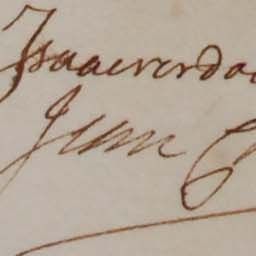 Isaac verdoe
Jean C